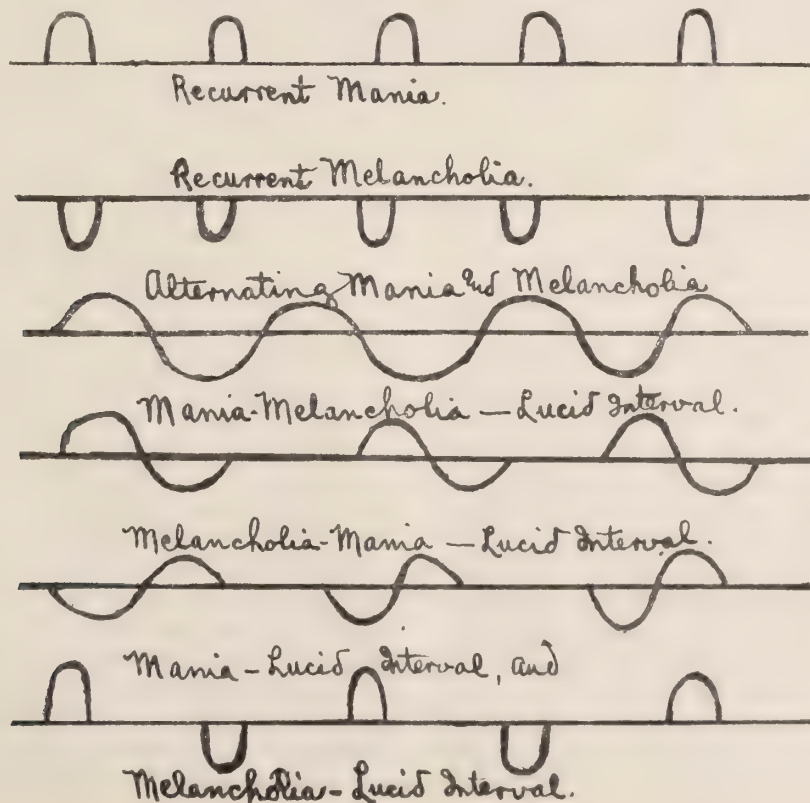 Recurrent Mania.
Recurrent Melancholia.
Alternating Mania and Melancholia
Mania-Melancholia — Lucid Interval.
Melancholia-Mania — Lucid Interval.
Mania-Lucid Interval, and
Melancholia-Lucid Interval.